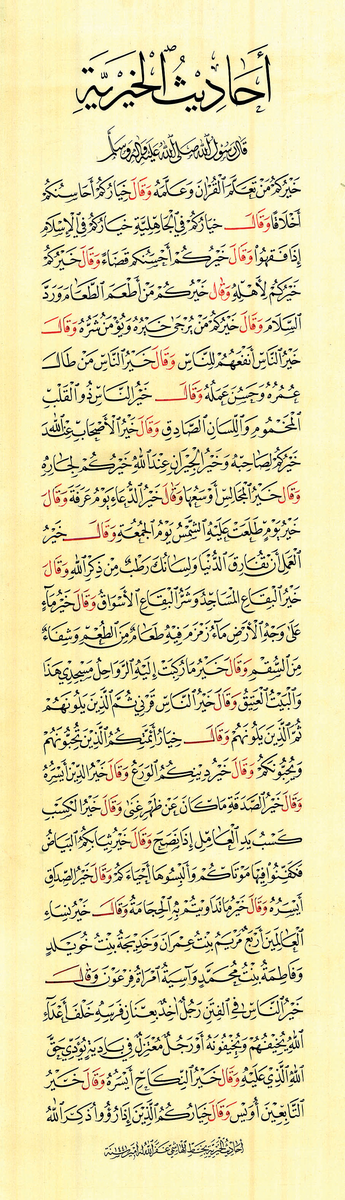 أَحَادِيثُ الْخَيْرِيَّةِ
قَالَ رَسُولُ اللهِ صَلَّى اللهُ عَلَيْهِ وَآلِهِ وَسَلَّمَ
خَيْرُكُمْ مَنْ تَعَلَّمَ الْقُرْآنَ وَعَلَّمَهُ وَقَالَ خِيَارُكُمْ أَحَاسِنُكُمْ
أَخْلَاقًا وَقَالَ خِيَارُكُمْ فِي الْجَاهِلِيَّةِ خِيَارُكُمْ فِي الْإِسْلَامِ
إِذَا فَقِهُوا وَقَالَ خَيْرُكُمْ أَحْسَنُكُمْ قَضَاءً وَقَالَ خَيْرُكُمْ
خَيْرُكُمْ لِأَهْلِهِ وَقَالَ خَيْرُكُمْ مَنْ أَطْعَمَ الطَّعَامَ وَرَدَّ
السَّلَامَ وَقَالَ خَيْرُكُمْ مَنْ يُرْجَى خَيْرُهُ وَيُؤْمَنُ شَرُّهُ وَقَالَ
خَيْرُ النَّاسِ أَنْفَعُهُمْ لِلنَّاسِ وَقَالَ خَيْرُ النَّاسِ مَنْ طَالَ
عُمُرُهُ وَحَسُنَ عَمَلُهُ وَقَالَ خَيْرُ النَّاسِ ذُو الْقَلْبِ
الْمَخْمُومِ وَاللِّسَانِ الصَّادِقِ وَقَالَ خَيْرُ الْأَصْحَابِ عِنْدَ اللهِ
خَيْرُكُمْ لِصَاحِبِهِ وَخَيْرُ الْجِيرَانِ عِنْدَ اللهِ خَيْرُكُمْ لِجَارِهِ
وَقَالَ خَيْرُ الْمَجَالِسِ أَوْسَعُهَا وَقَالَ خَيْرُ الدُّعَاءِ يَوْمُ عَرَفَةَ وَقَالَ
خَيْرُ يَوْمٍ طَلَعَتْ عَلَيْهِ الشَّمْسُ يَوْمُ الْجُمُعَةِ وَقَالَ خَيْرُ
الْعَمَلِ أَنْ تُفَارِقَ الدُّنْيَا وَلِسَانُكَ رَطْبٌ مِنْ ذِكْرِ اللهِ وَقَالَ
خَيْرُ الْبِقَاعِ الْمَسَاجِدُ وَشَرُّ الْبِقَاعِ الْأَسْوَاقُ وَقَالَ خَيْرُ مَاءٍ
عَلَى وَجْهِ الْأَرْضِ مَاءُ زَمْزَمَ فِيهِ طَعَامٌ مِنَ الطُّعْمِ وَشِفَاءٌ
مِنَ السُّقْمِ وَقَالَ خَيْرُ مَا رُكِبَتْ إِلَيْهِ الرَّوَاحِلُ مَسْجِدِي هَذَا
وَالْبَيْتُ الْعَتِيقُ وَقَالَ خَيْرُ النَّاسِ قَرْنِي ثُمَّ الَّذِينَ يَلُونَهُمْ
ثُمَّ الَّذِينَ يَلُونَهُمْ وَقَالَ خِيَارُ أَئِمَّتِكُمُ الَّذِينَ تُحِبُّونَهُمْ
وَيُحِبُّونَكُمْ وَقَالَ خَيْرُ دِينِكُمُ الْوَرَعُ وَقَالَ خَيْرُ الدِّينِ أَيْسَرُهُ
وَقَالَ خَيْرُ الصَّدَقَةِ مَا كَانَ عَنْ ظَهْرِ غِنًى وَقَالَ خَيْرُ الْكَسْبِ
كَسْبُ يَدِ الْعَامِلِ إِذَا نَصَحَ وَقَالَ خَيْرُ ثِيَابِكُمُ الْبَيَاضُ
فَكَفِّنُوا فِيهَا مَوْتَاكُمْ وَأَلْبِسُوهَا أَحْيَاءَكُمْ وَقَالَ خَيْرُ الصَّدَاقِ
أَيْسَرُهُ وَقَالَ خَيْرُ مَا تَدَاوَيْتُمْ بِهِ الْحِجَامَةُ وَقَالَ خَيْرُ نِسَاءِ
الْعَالَمِينَ أَرْبَعٌ مَرْيَمُ بِنْتُ عِمْرَانَ وَخَدِيجَةُ بِنْتُ خُوَيْلِدٍ
وَفَاطِمَةُ بِنْتُ مُحَمَّدٍ وَآسِيَةُ امْرَأَةُ فِرْعَوْنَ وَقَالَ
خَيْرُ النَّاسِ فِي الْفِتَنِ رَجُلٌ آخِذٌ بِعِنَانِ فَرَسِهِ خَلْفَ أَعْدَاءِ
اللهِ يُخِيفُهُمْ وَيُخِيفُونَهُ أَوْ رَجُلٌ مُعْتَزِلٌ فِي بَادِيَةٍ يُؤَدِّي حَقَّ
اللهِ الَّذِي عَلَيْهِ وَقَالَ خَيْرُ النِّكَاحِ أَيْسَرُهُ وَقَالَ خَيْرُ
التَّابِعِينَ أُوَيْسٌ وَقَالَ خِيَارُكُمُ الَّذِينَ إِذَا رُؤُوا ذُكِرَ اللهُ